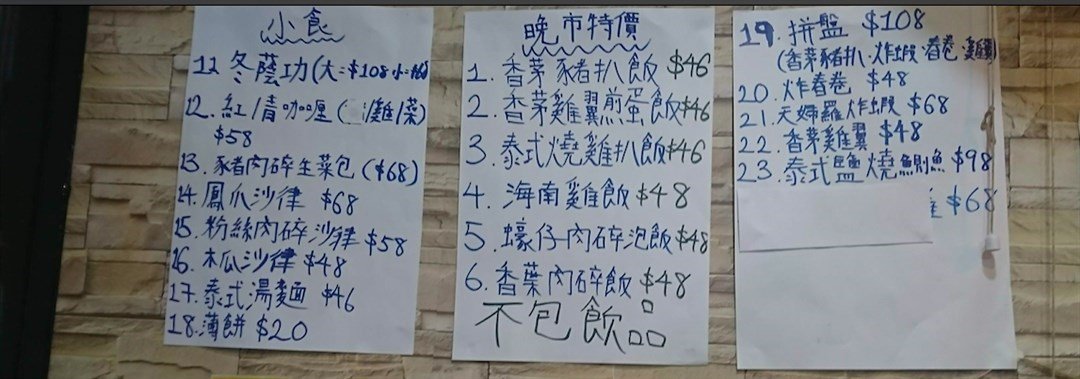 小食
12 冬蔭功(大:$108小:
12. 紅/青咖喱( /雞/菜)
$58
13. 豬肉碎生菜包($68)
14. 鳳爪沙律 $68
15. 粉絲肉碎沙律$58
16. 木瓜沙律 $48
17. 泰式湯麵 $46
18. 薄餅 $20
晚市特價
1. 香茅豬扒飯 $46
2. 香茅雞翼煎蛋飯$46
3. 泰式燒雞扒飯$46
4. 海南雞飯 $48
5. 蠔仔肉碎泡飯$48
6. 香葉肉碎飯 $48
不包飲品
19. 拼盤 $108
(香茅豬扒·炸蝦·春卷·雞翼)
20. 炸春卷 $48
21. 天婦羅炸蝦 $68
22. 香茅雞翼 $48
23. 泰式鹽燒鯛魚 $98
$68